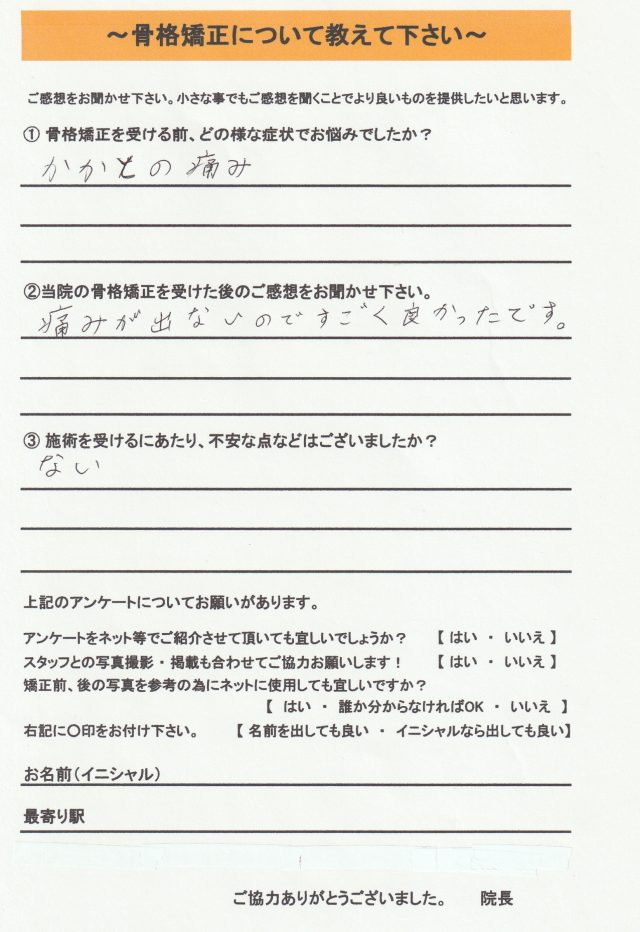 ～骨格矯正について教えて下さい～
ご感想をお聞かせ下さい。小さな事でもご感想を聞くことでより良いものを提供したいと思います。
① 骨格矯正を受ける前、どの様な症状でお悩みでしたか？
かかとの痛み
②当院の骨格矯正を受けた後のご感想をお聞かせ下さい。
痛みが出ないのですごく良かったです。
③ 施術を受けるにあたり、不安な点などはございましたか？
ない
上記のアンケートについてお願いがあります。
アンケートをネット等でご紹介させて頂いても宜しいでしょうか？ 【 はい ・ いいえ 】
スタッフとの写真撮影・掲載も合わせてご協力お願いします！ 【 はい ・ いいえ 】
矯正前、後の写真を参考の為にネットに使用しても宜しいですか？
【 はい ・ 誰か分からなければOK ・ いいえ 】
右記に〇印をお付け下さい。 【 名前を出しても良い ・ イニシャルなら出しても良い】
お名前（イニシャル）
最寄り駅
ご協力ありがとうございました。 院長